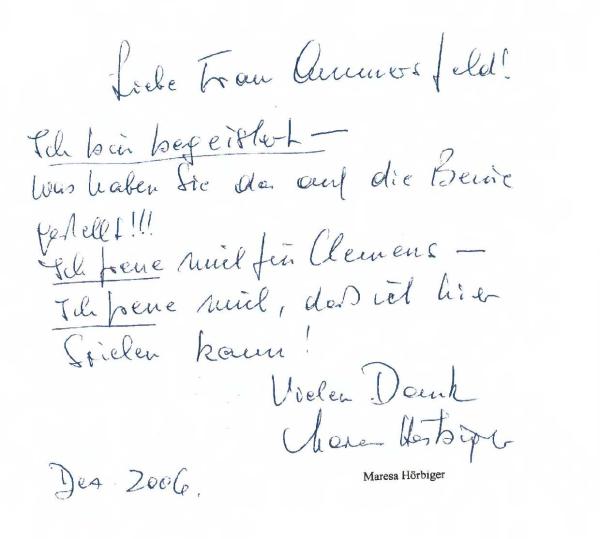 Liebe Frau Ammersfeld!
Ich bin begeistert —
was haben Sie da auf die Beine
gestellt!!!
Ich freue mich für Clemens —
Ich freue mich, daß ich hier
Spielen kann!
Vielen Dank
Maresa Hörbiger
Maresa Hörbiger
Dez 2006.